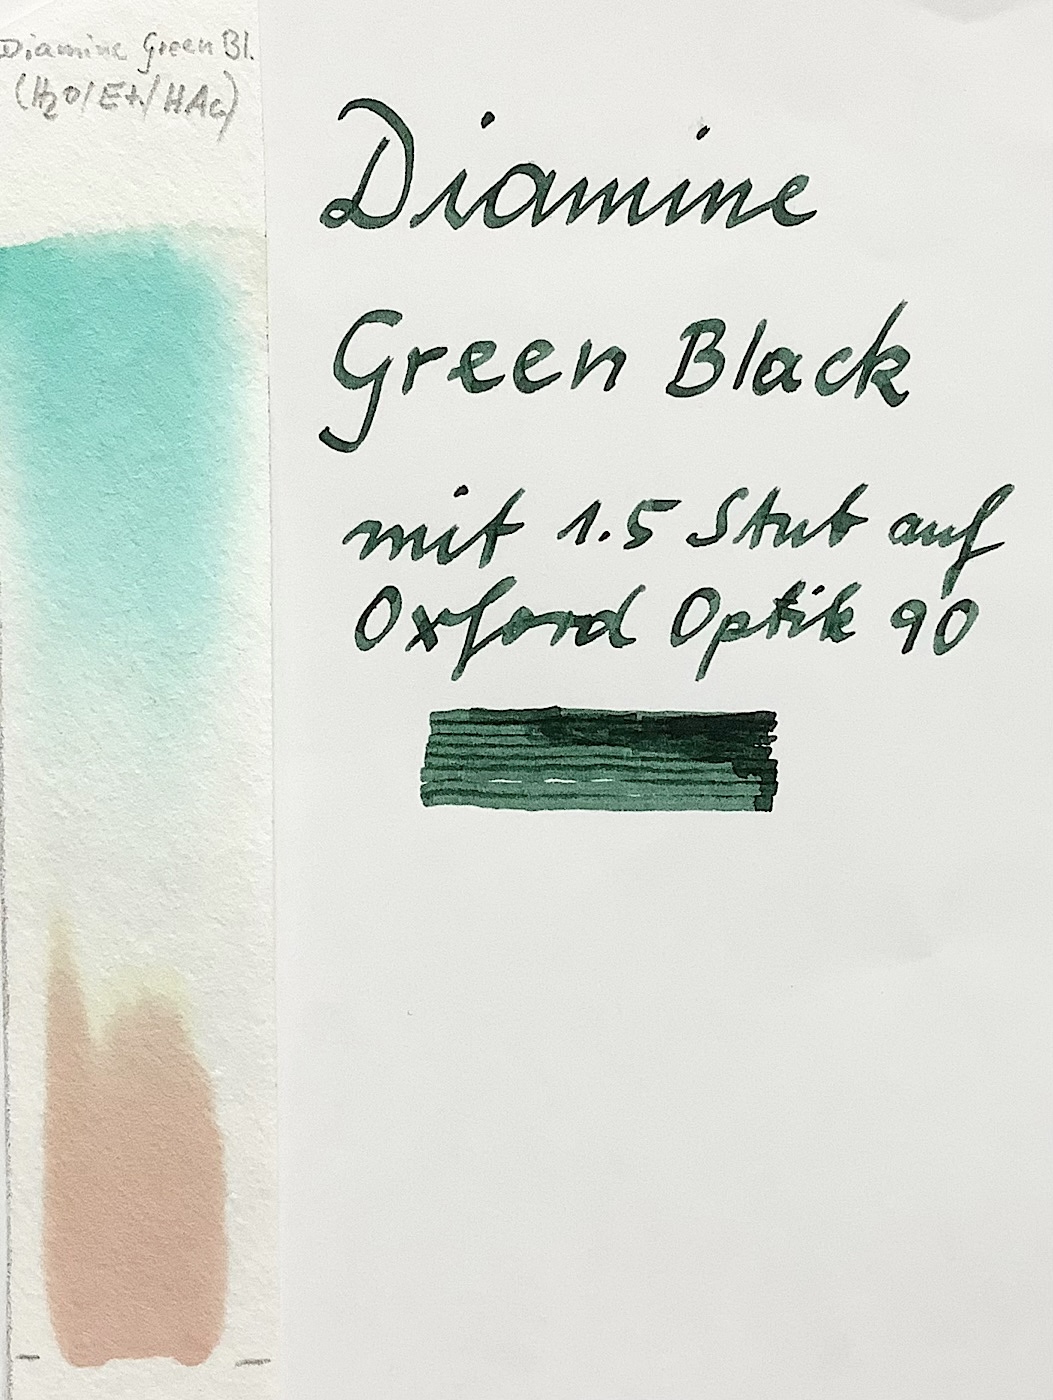 Diamine Green Bl.
(H₂O/Et/HAc)
Diamine
Green Black
mit 1.5 Stub auf
Oxford Optik 90